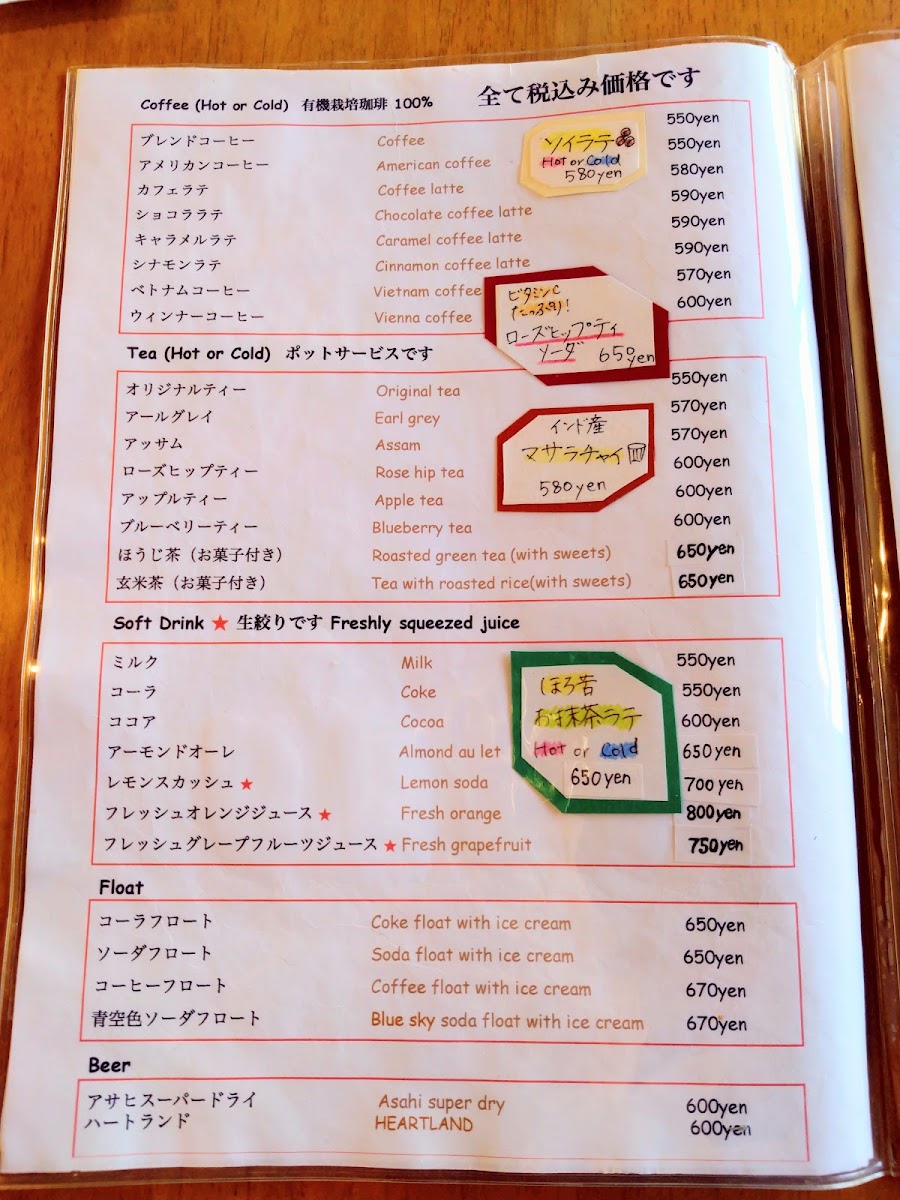 Coffee (Hot or Cold) 有機栽培珈琲 100% 全て税込み価格です
ブレンドコーヒー Coffee 550yen
アメリカンコーヒー American coffee 550yen
カフェラテ Coffee latte 580yen
ショコララテ Chocolate coffee latte 590yen
キャラメルラテ Caramel coffee latte 590yen
シナモンラテ Cinnamon coffee latte 590yen
ベトナムコーヒー Vietnam coffee 570yen
ウィンナーコーヒー Vienna coffee 600yen
ソイラテ
Hot or Cold
580yen
ビタミンC
たっぷり!
ローズヒップティ
ソーダ 650yen
Tea (Hot or Cold) ポットサービスです
オリジナルティー Original tea 550yen
アールグレイ Earl grey 570yen
アッサム Assam 570yen
ローズヒップティー Rose hip tea 600yen
アップルティー Apple tea 600yen
ブルーベリーティー Blueberry tea 600yen
ほうじ茶（お菓子付き） Roasted green tea (with sweets) 650yen
玄米茶（お菓子付き） Tea with roasted rice(with sweets) 650yen
インド産
マサラチャイ
580yen
Soft Drink ★ 生絞りです Freshly squeezed juice
ミルク Milk 550yen
コーラ Coke 550yen
ココア Cocoa 600yen
アーモンドオーレ Almond au let 650yen
レモンスカッシュ ★ Lemon soda 700yen
フレッシュオレンジジュース ★ Fresh orange 800yen
フレッシュグレープフルーツジュース ★ Fresh grapefruit 750yen
ほろ苦
お抹茶ラテ
Hot or Cold
650yen
Float
コーラフロート Coke float with ice cream 650yen
ソーダフロート Soda float with ice cream 650yen
コーヒーフロート Coffee float with ice cream 670yen
青空色ソーダフロート Blue sky soda float with ice cream 670yen
Beer
アサヒスーパードライ Asahi super dry 600yen
ハートランド HEARTLAND 600yen